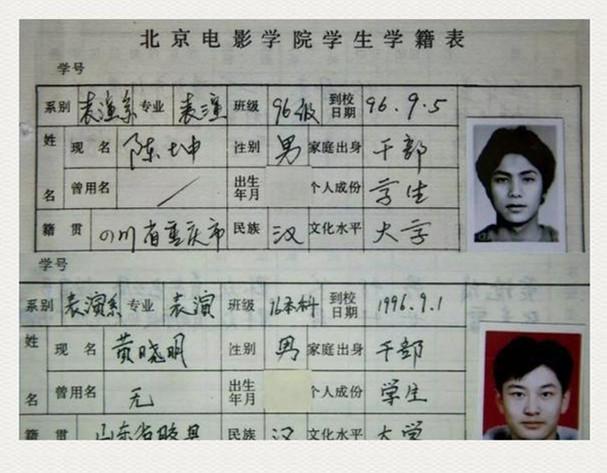 北京电影学院学生学籍表
学号
系别 表演系 专业 表演 班级 96级 到校日期 96.9.5
姓名 现名 陈坤 性别 男 家庭出身 干部
曾用名 出生年月 个人成份 学生
籍贯 四川省重庆市 民族 汉 文化水平 大学
学号
系别 表演系 专业 表演 班级 96本科 到校日期 1996.9.1
姓名 现名 黄晓明 性别 男 家庭出身 干部
曾用名 无 出生年月 个人成份 学生
籍贯 山东省 民族 汉 文化水平 大学